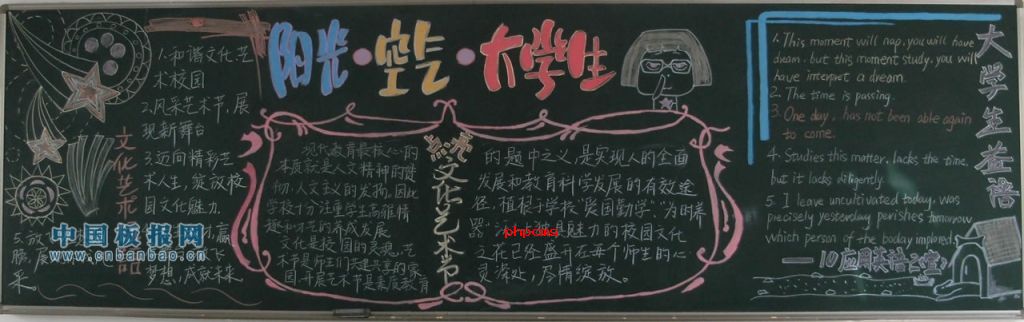 阳光·空气·大学生
1.和谐文化,艺
术校园
2.风采艺术节,展
现新舞台
3.迈向精彩艺
术人生,绽放校
园文化魅力.
文化艺术
中国板报网
www.cnbanbao.cn
梦想,成就未来
采。
点亮文化艺术节
现代教育最核心的
本质就是人文精神的灌
彻,人文主义的发扬。因此
学校十分注重学生高雅情
趣和才艺的养成发展
文化是校园的灵魂,艺
术节是师生们共建共享的家
园.开展艺术节是素质教育
的题中之义,是实现人的全面
发展和教育科学发展的有效途
径.植根于学校"爱国勤学"."为时养
器
phpcmsj
魅力的校园文化
之花已经盛开在每个师生的心
灵深处,尽情绽放。
1. This moment will nap, you will have
dream, but this moment study, you will
have interpret a dream.
2. The time is passing.
3. One day, has not been able again
to come.
4. Studies this matter, lacks the time,
but it lacks diligently
5. I leave uncultivated today, was
precisely yesterday perishes tomorrow
which person of the boday implored.
——10应用英语2堂
大学生签语